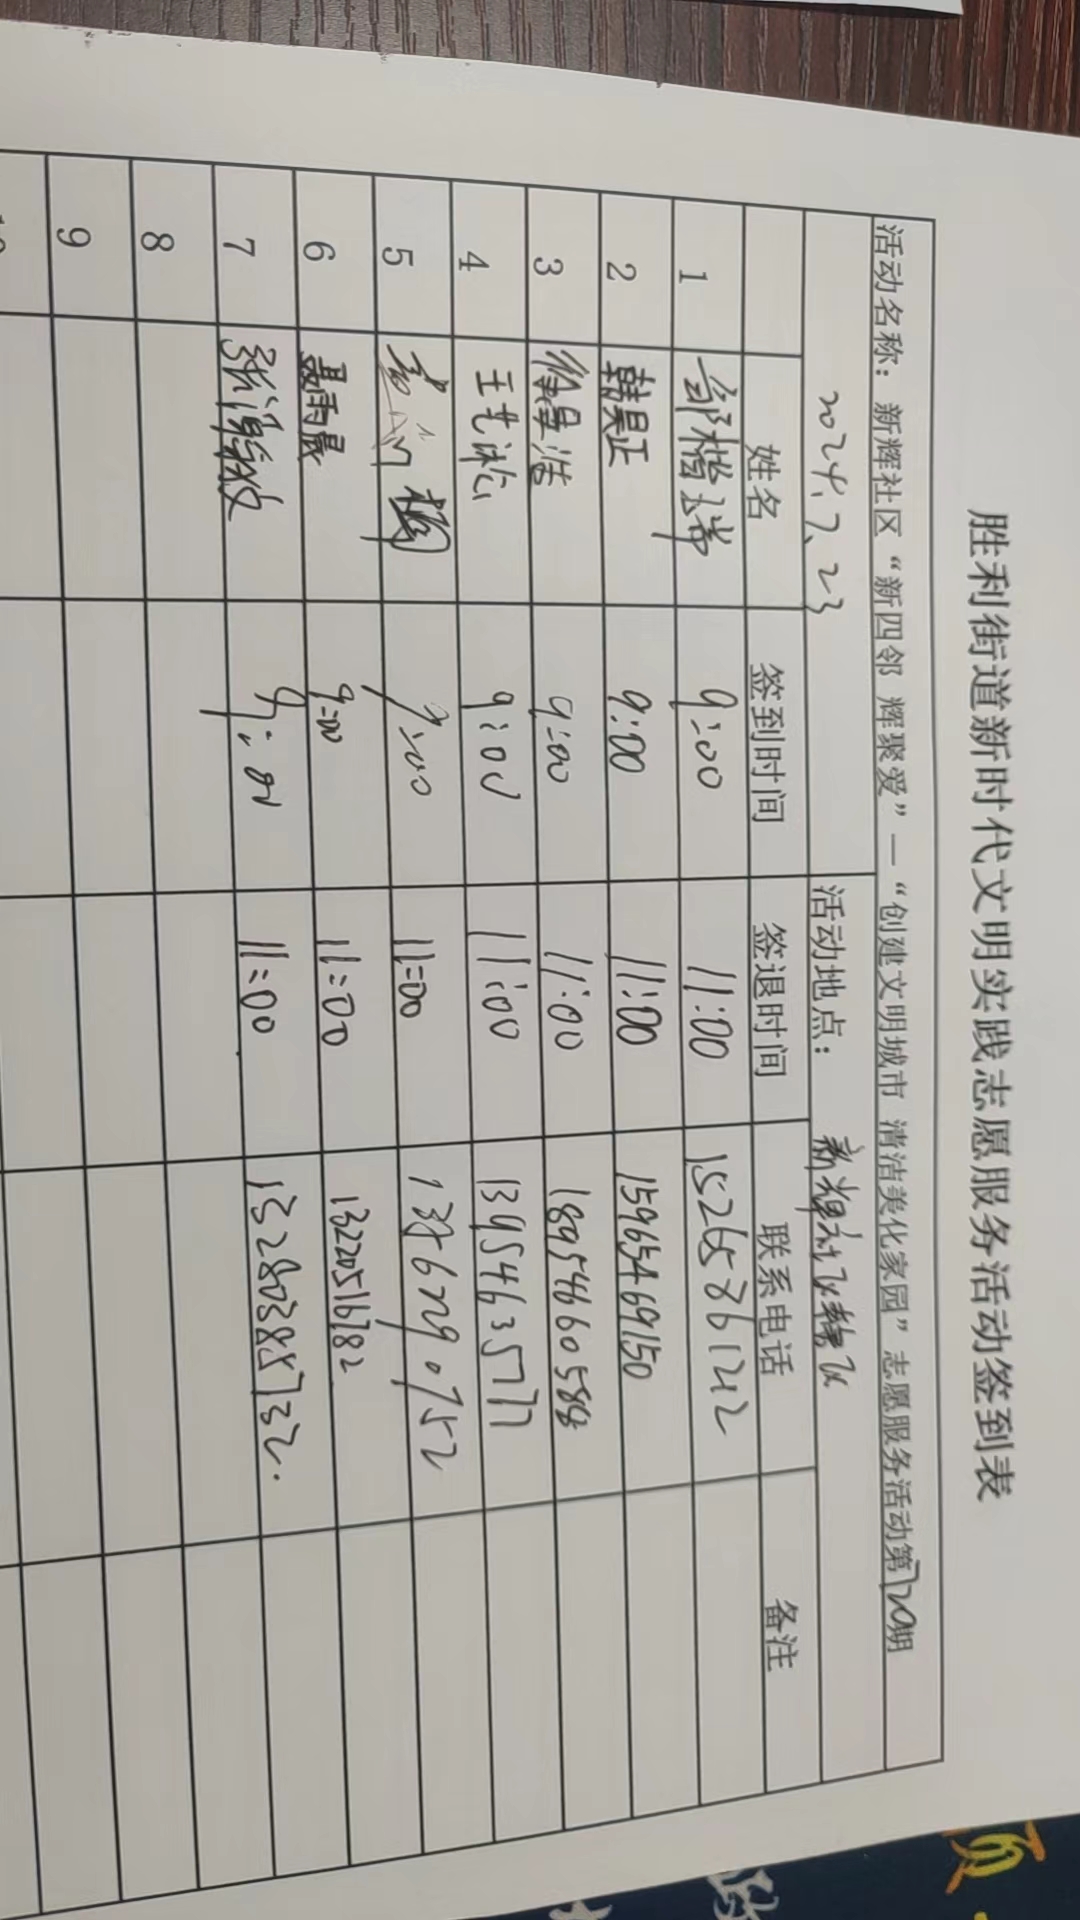 胜利街道新时代文明实践志愿服务活动签到表
活动名称：新辉社区“新四邻 辉聚爱”—“创建文明城市 清洁美化家园”志愿服务活动第120期
2024.7.23 活动地点： 新辉社区辖区
姓名 签到时间 签退时间 联系电话 备注
1 邹楷瑞 9:00 11:00 15265861242
2 韩昊正 9:00 11:00 15965469150
3 徐昊浩 9:00 11:00 18954660588
4 王艺沭 9:00 11:00 13954635777
5 9:00 11:00
6 聂雨晨 9:00 11:00 13220516782
7 9:00 11:00 13280385732.
8
9